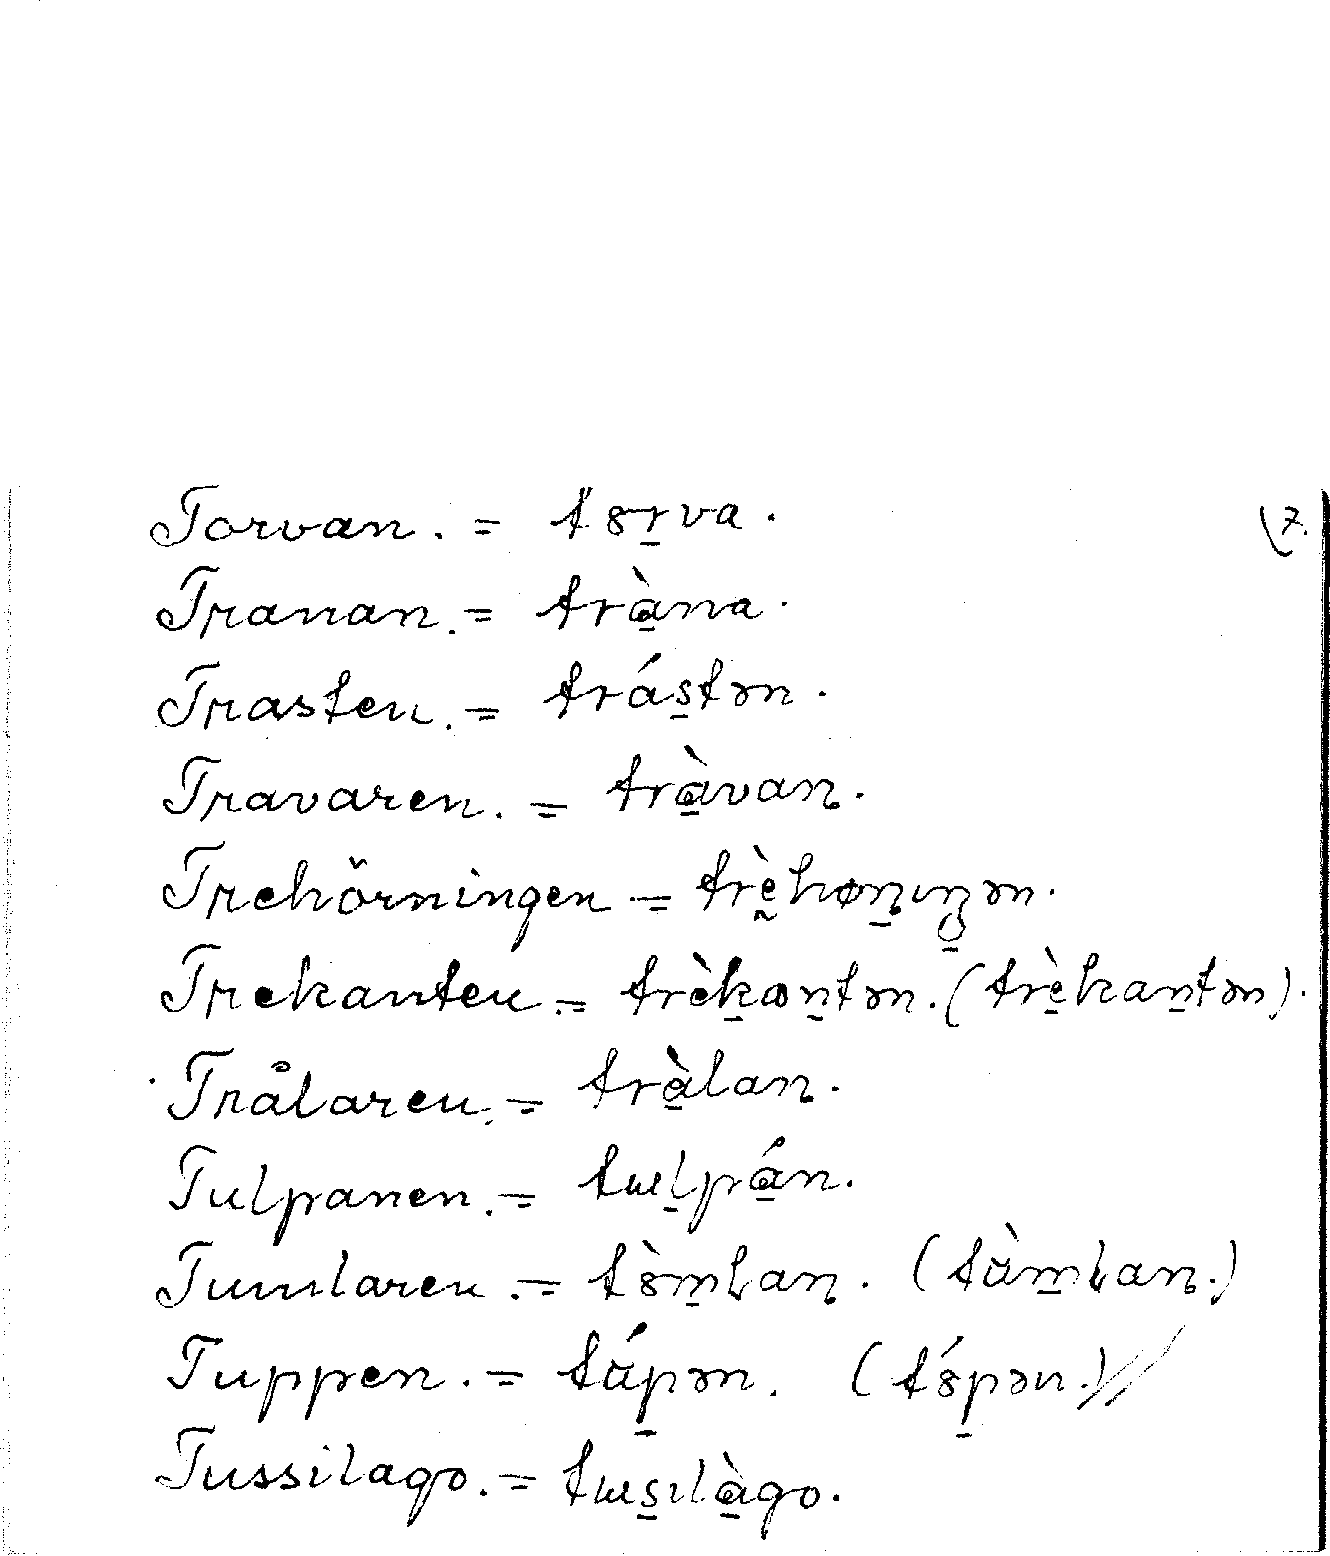 Torvan. = t8r̲va. 7.
Tranan. = trà̲na.
Trasten. = trás̲tən.
Travaren. = trà̲van.
Trehörningen = trḛ̀høn̲ıŋ̲ən.
Trekanten = trèk̲an̲tən. (trè̲kan̲tən).
Trålaren. = trà̲lan.
Tulpanen. = tɯl̲pá̲n.
Tumlaren. = t8̀m̲lan. (tàm̲lan.)
Tuppen. = táp̲ən. (t8́p̲ən.)//
Tussilago. = tɯs̲ılà̲go.